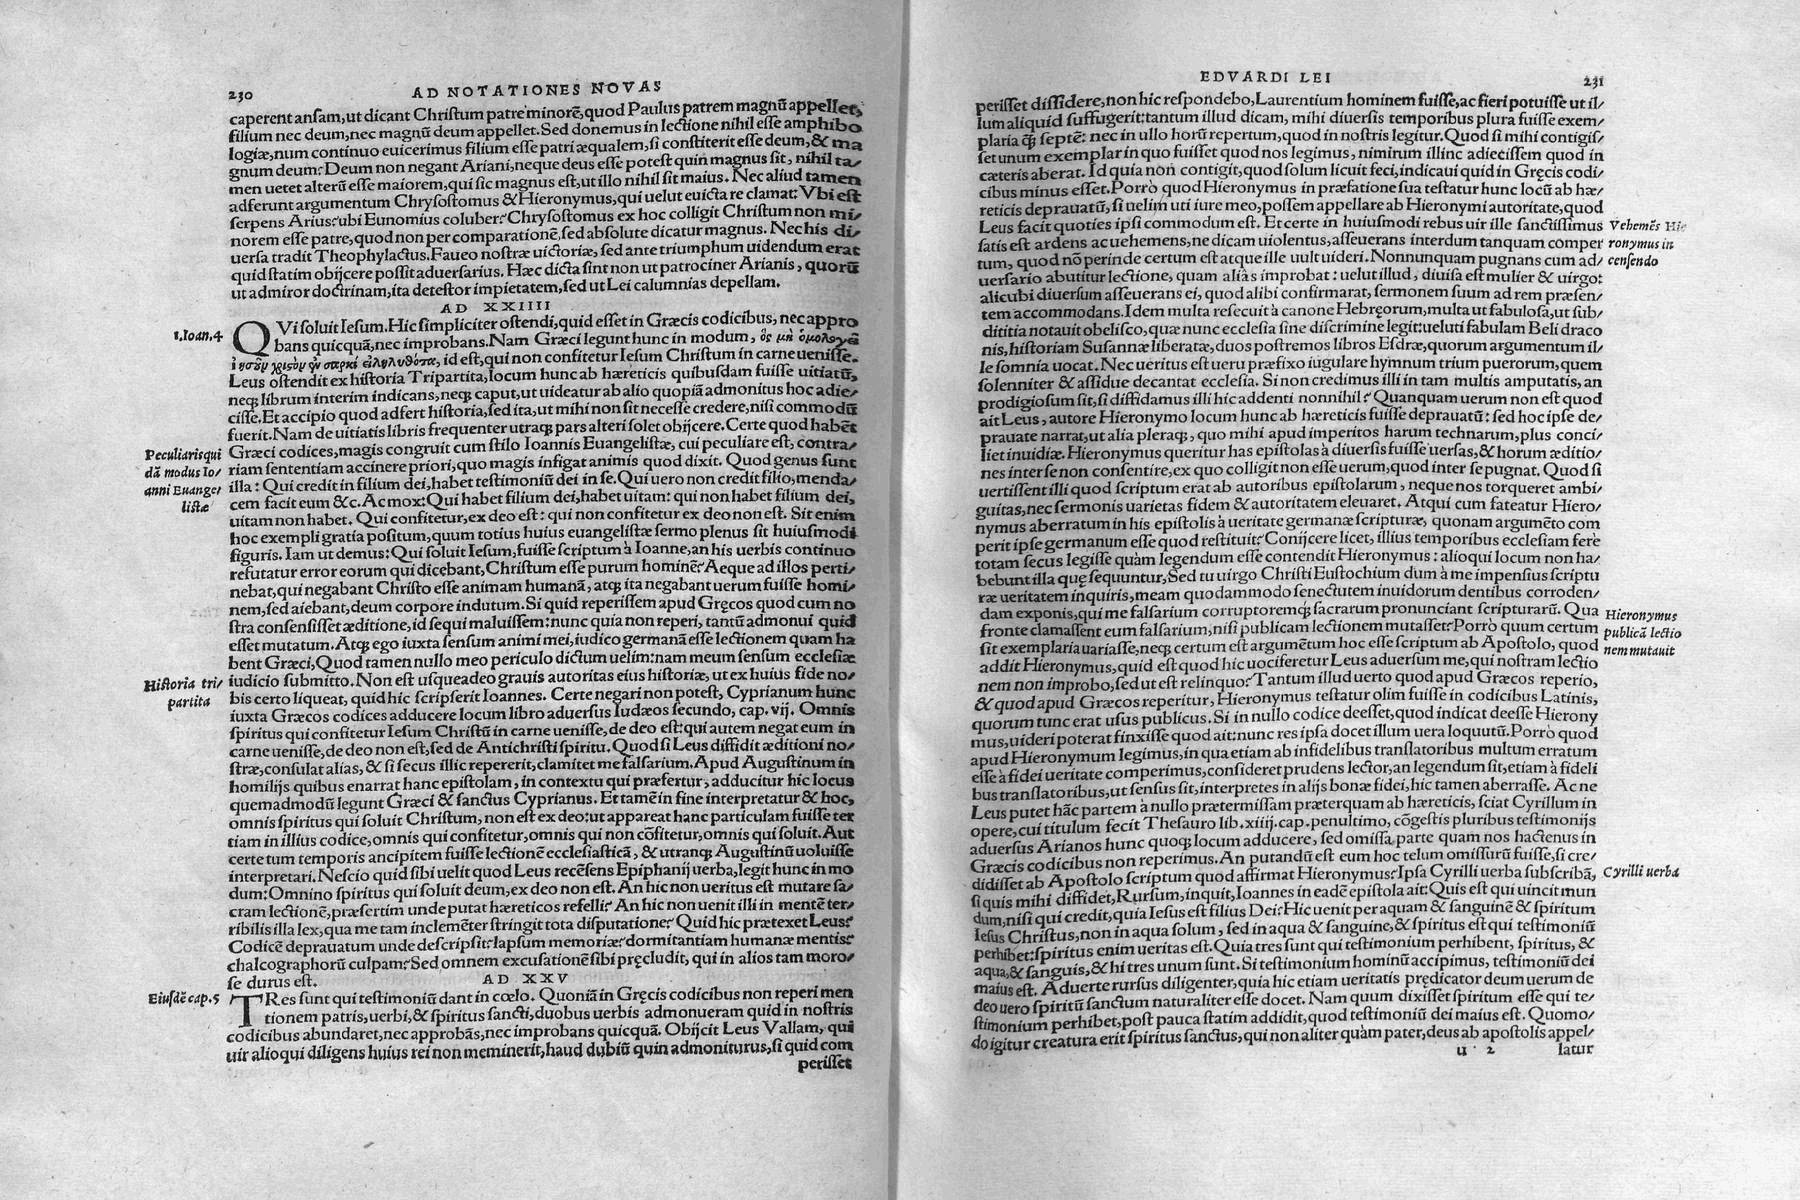 230 AD NOTATIONES NOVAS
caperent ansam, ut dicant Christum patre minorē, quod Paulus patrem magnū appellet,
filium nec deum, nec magnū deum appellet. Sed donemus in lectione nihil esse amphibo
logiæ, num continuo euicerimus filium esse patri æqualem, si constiterit esse deum, & ma
gnum deum? Deum non negant Ariani, neque deus esse potest quin magnus sit, nihil ta/
men uetet alterū esse maiorem, qui sic magnus est, ut illo nihil sit maius. Nec aliud tamen
adferunt argumentum Chrysostomus & Hieronymus, qui uelut euicta re clamat: Vbi est
serpens Arius? ubi Eunomius coluber? Chrysostomus ex hoc colligit Christum non mi/
norem esse patre, quod non per comparationē, sed absolute dicatur magnus. Nec his di/
uersa tradit Theophylactus. Faueo nostræ uictoriæ, sed ante triumphum uidendum erat
quid statim obijcere possit aduersarius. Hæc dicta sint non ut patrociner Arianis, quorū
ut admiror doctrinam, ita detestor impietatem, sed ut Lei calumnias depellam.
AD XXIIII
1. Ioan. 4
QVi soluit Iesum. Hic simpliciter ostendi, quid esset in Græcis codicibus, nec appro
bans quicquā, nec improbans. Nam Græci legunt hunc in modum, ὃς μὴ ὁμολογᾶ
ἰησοῦν χριστὸν ἐν σαρκὶ ἐληλυθότα, id est, qui non confitetur Iesum Christum in carne uenisse.
Leus ostendit ex historia Tripartita, locum hunc ab hæreticis quibusdam fuisse uitiatū,
neqꝫ librum interim indicans, neqꝫ caput, ut uideatur ab alio quopiā admonitus hoc adie/
cisse. Et accipio quod adfert historia, sed ita, ut mihi non sit necesse credere, nisi commodū
fuerit. Nam de uitiatis libris frequenter utraqꝫ pars alteri solet obijcere. Certe quod habēt
Peculiaris qui
dā modus Io/
anni Euange/
listæ
Græci codices, magis congruit cum stilo Ioannis Euangelistæ, cui peculiare est, contra/
riam sententiam accinere priori, quo magis infigat animis quod dixit. Quod genus sunt
illa: Qui credit in filium dei, habet testimoniū dei in se. Qui uero non credit filio, menda/
cem facit eum &c. Ac mox: Qui habet filium dei, habet uitam: qui non habet filium dei,
uitam non habet. Qui confitetur, ex deo est: qui non confitetur ex deo non est. Sit enim
hoc exempli gratia positum, quum totius huius euangelistæ sermo plenus sit huiusmodi
figuris. Iam ut demus: Qui soluit Iesum, fuisse scriptum à Ioanne, an his uerbis continuo
refutatur error eorum qui dicebant, Christum esse purum hominē? Aeque ad illos perti/
nebat, qui negabant Christo esse animam humanā, atqꝫ ita negabant uerum fuisse homi/
nem, sed aiebant, deum corpore indutum. Si quid reperissem apud Gręcos quod cum no
stra consensisset æditione, id sequi maluissem: nunc quia non reperi, tantū admonui quid
esset mutatum. Atqꝫ ego iuxta sensum animi mei, iudico germanā esse lectionem quam ha
bent Græci, Quod tamen nullo meo periculo dictum uelim: nam meum sensum ecclesiæ
Historia tri/
partita
iudicio submitto. Non est usqueadeo grauis autoritas eius historiæ, ut ex huius fide no/
bis certo liqueat, quid hic scripserit Ioannes. Certe negari non potest, Cyprianum hunc
iuxta Græcos codices adducere locum libro aduersus Iudæos secundo, cap. vij. Omnis
spiritus qui confitetur Iesum Christū in carne uenisse, de deo est: qui autem negat eum in
carne uenisse, de deo non est, sed de Antichristi spiritu. Quod si Leus diffidit æditioni no/
stræ, consulat alias, & si secus illic repererit, clamitet me falsarium. Apud Augustinum in
homilijs quibus enarrat hanc epistolam, in contextu qui præfertur, adducitur hic locus
quemadmodū legunt Græci & sanctus Cyprianus. Et tamē in fine interpretatur & hoc,
omnis spiritus qui soluit Christum, non est ex deo: ut appareat hanc particulam fuisse ter
tiam in illius codice, omnis qui confitetur, omnis qui non cōfitetur, omnis qui soluit. Aut
certe tum temporis ancipitem fuisse lectionē ecclesiasticā, & utranqꝫ Augustinū uoluisse
interpretari. Nescio quid sibi uelit quod Leus recēsens Epiphanij uerba, legit hunc in mo
dum: Omnino spiritus qui soluit deum, ex deo non est. An hic non ueritus est mutare sa/
cram lectionē, præsertim unde putat hæreticos refelli? An hic non uenit illi in mentē ter/
ribilis illa lex, qua me tam inclemēter stringit tota disputatione? Quid hic prætexet Leus?
Codicē deprauatum unde descripsit? lapsum memoriæ? dormitantiam humanæ mentis?
chalcographorū culpam? Sed omnem excusationē sibi pręcludit, qui in alios tam moro/
se durus est.
AD XXV
Eiusdē cap. 5
TRes sunt qui testimoniū dant in cœlo. Quoniā in Gręcis codicibus non reperi men
tionem patris, uerbi, & spiritus sancti, duobus uerbis admonueram quid in nostris
codicibus abundaret, nec approbās, nec improbans quicquā. Obijcit Leus Vallam, qui
uir alioqui diligens huius rei non meminerit, haud dubiū quin admoniturus, si quid com
perisset
EDVARDI LEI 231
perisset diffidere, non hic respondebo, Laurentium hominem fuisse, ac fieri potuisse ut il/
lum aliquid suffugerit: tantum illud dicam, mihi diuersis temporibus plura fuisse exem/
plaria q̄ꝫ septē: nec in ullo horū repertum, quod in nostris legitur. Quod si mihi contigis/
set unum exemplar in quo fuisset quod nos legimus, nimirum illinc adiecissem quod in
cæteris aberat. Id quia non contigit, quod solum licuit feci, indicaui quid in Gręcis codi/
cibus minus esset. Porrò quod Hieronymus in præfatione sua testatur hunc locū ab hæ/
reticis deprauatū, si uelim uti iure meo, possem appellare ab Hieronymi autoritate, quod
Leus facit quoties ipsi commodum est. Et certe in huiusmodi rebus uir ille sanctissimus
satis est ardens ac uehemens, ne dicam uiolentus, asseuerans interdum tanquam comper
tum, quod nō perinde certum est atque ille uult uideri. Nonnunquam pugnans cum ad/
Vehemēs Hie
ronymus in
censendo
uersario abutitur lectione, quam aliàs improbat: uelut illud, diuisa est mulier & uirgo:
alicubi diuersum asseuerans ei, quod alibi confirmarat, sermonem suum ad rem præsen/
tem accommodans. Idem multa resecuit à canone Hebręorum, multa ut fabulosa, ut sub/
dititia notauit obelisco, quæ nunc ecclesia sine discrimine legit: ueluti fabulam Beli draco
nis, historiam Susannæ liberatæ, duos postremos libros Esdræ, quorum argumentum il/
le somnia uocat. Nec ueritus est ueru præfixo iugulare hymnum trium puerorum, quem
solenniter & assidue decantat ecclesia. Si non credimus illi in tam multis amputatis, an
prodigiosum sit, si diffidamus illi hic addenti nonnihil? Quanquam uerum non est quod
ait Leus, autore Hieronymo locum hunc ab hæreticis fuisse deprauatū: sed hoc ipse de/
prauate narrat, ut alia pleraqꝫ, quo mihi apud imperitos harum technarum, plus conci/
liet inuidiæ. Hieronymus queritur has epistolas à diuersis fuisse uersas, & horum æditio/
nes inter se non consentire, ex quo colligit non esse uerum, quod inter se pugnat. Quod si
uertissent illi quod scriptum erat ab autoribus epistolarum, neque nos torqueret ambi/
guitas, nec sermonis uarietas fidem & autoritatem eleuaret. Atqui cum fateatur Hiero/
nymus aberratum in his epistolis à ueritate germanæ scripturæ, quonam argumēto com
perit ipse germanum esse quod restituit? Conijcere licet, illius temporibus ecclesiam fere
totam secus legisse quàm legendum esse contendit Hieronymus: alioqui locum non ha/
bebunt illa quę sequuntur, Sed tu uirgo Christi Eustochium dum à me impensius scriptu
ræ ueritatem inquiris, meam quodammodo senectutem inuidorum dentibus corroden/
dam exponis, qui me falsarium corruptoremqꝫ sacrarum pronunciant scripturarū. Qua
fronte clamassent eum falsarium, nisi publicam lectionem mutasset? Porrò quum certum
sit exemplaria uariasse, neqꝫ certum est argumētum hoc esse scriptum ab Apostolo, quod
Hieronymus
publicā lectio
nem mutauit
addit Hieronymus, quid est quod hic uociferetur Leus aduersum me, qui nostram lectio
nem non improbo, sed ut est relinquo? Tantum illud uerto quod apud Græcos reperio,
& quod apud Græcos reperitur, Hieronymus testatur olim fuisse in codicibus Latinis,
quorum tunc erat usus publicus. Si in nullo codice deesset, quod indicat deesse Hierony
mus, uideri poterat finxisse quod ait: nunc res ipsa docet illum uera loquutū. Porrò quod
apud Hieronymum legimus, in qua etiam ab infidelibus translatoribus multum erratum
esse à fidei ueritate comperimus, consideret prudens lector, an legendum sit, etiam à fideli
bus translatoribus, ut sensus sit, interpretes in alijs bonæ fidei, hic tamen aberrasse. Ac ne
Leus putet hāc partem à nullo prætermissam præterquam ab hæreticis, sciat Cyrillum in
opere, cui titulum fecit Thesauro lib. xiiij. cap. penultimo, cōgestis pluribus testimonijs
aduersus Arianos hunc quoqꝫ locum adducere, sed omissa parte quam nos hactenus in
Græcis codicibus non reperimus. An putandū est eum hoc telum omissurū fuisse, si cre/
didisset ab Apostolo scriptum quod affirmat Hieronymus? Ipsa Cyrilli uerba subscribā,
Cyrilli uerba
si quis mihi diffidet, Rursum, inquit, Ioannes in eadē epistola ait: Quis est qui uincit mun
dum, nisi qui credit, quia Iesus est filius Dei? Hic uenit per aquam & sanguinē & spiritum
Iesus Christus, non in aqua solum, sed in aqua & sanguine, & spiritus est qui testimoniū
perhibet: spiritus enim ueritas est. Quia tres sunt qui testimonium perhibent, spiritus, &
aqua, & sanguis, & hi tres unum sunt. Si testimonium hominū accipimus, testimoniū dei
maius est. Aduerte rursus diligenter, quia hic etiam ueritatis prędicator deum uerum de
deo uero spiritū sanctum naturaliter esse docet. Nam quum dixisset spiritum esse qui te/
stimonium perhibet, post pauca statim addidit, quod testimoniū dei maius est. Quomo/
do igitur creatura erit spiritus sanctus, qui non aliter quàm pater, deus ab apostolis appel/
u 2 latur